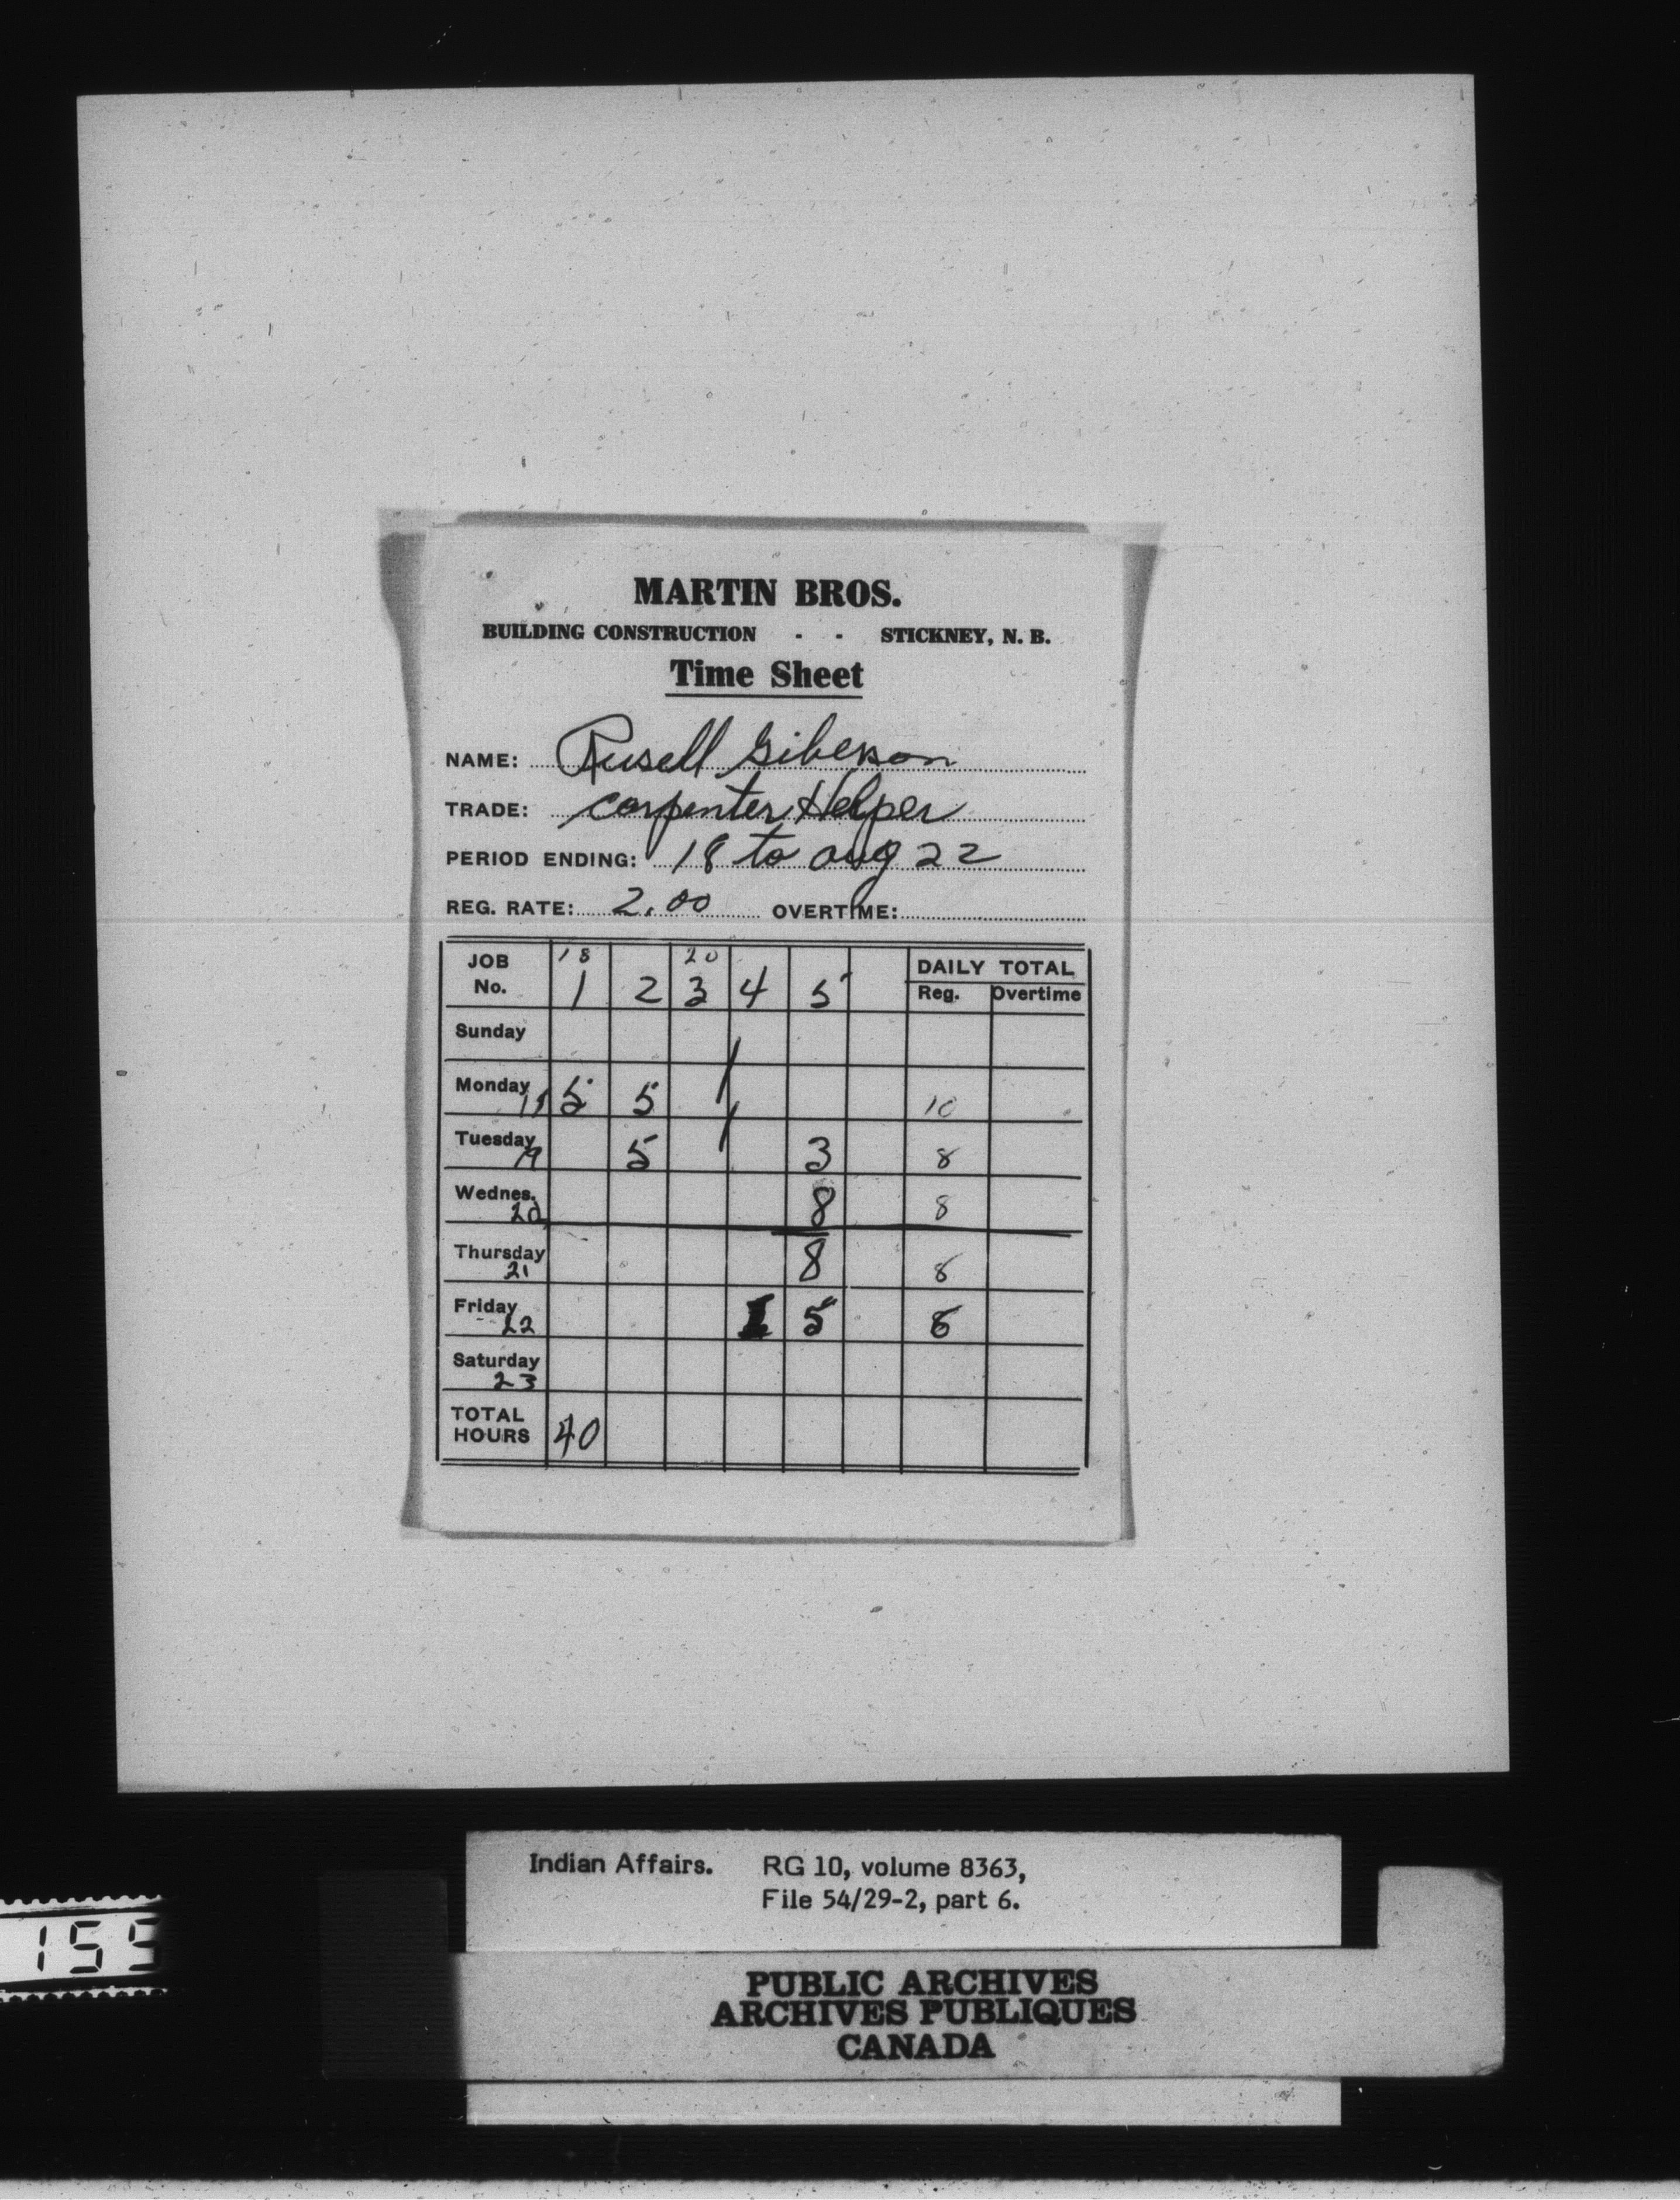 MARTIN BROS.
BUILDING CONSTRUCTION - - STICKNEY, N. B.
Time Sheet
NAME: Rusell Giberson
TRADE: Carpenter Helper
PERIOD ENDING: 18 to aug 22
REG. RATE: 2.00 OVERTIME:
18 20
JOB No. 1 2 3 4 5 DAILY TOTAL
Reg. Overtime
Sunday
Monday 5 5 10
Tuesday 19 5 3 8
Wednes. 20 8 8
Thursday 21 8 8
Friday 22 5 8
Saturday 23
TOTAL HOURS 40
Indian Affairs. RG 10, volume 8363,
File 54/29-2, part 6.
155
PUBLIC ARCHIVES
ARCHIVES PUBLIQUES
CANADA